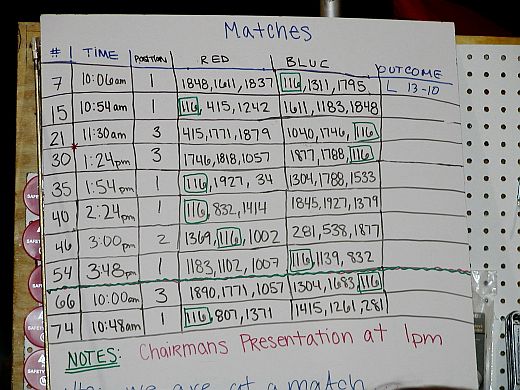 Matches
# TIME POSITION RED BLUE OUTCOME
7 10:06am 1 1848,1611,1837 116,1311,1795 L 13-10
15 10:54am 1 116, 415,1242 1611,1183,1848
21 11:30am 3 415,1771,1879 1040,1746, 116
30 1:24pm 3 1746,1818,1057 1877,1788,116
35 1:54pm 1 116,1927, 34 1304,1788,1533
40 2:24pm 1 116,832,1414 1845,1927,1379
46 3:00pm 2 1369,116,1002 281,538,1877
54 3:48pm 1 1183,1102,1007 116,1139,832
66 10:00am 3 1890,1771,1057 1304,1683,116
74 10:48am 1 116,807,1371 1415,1261,281
NOTES: Chairmans Presentation at 1pm
we are at a match